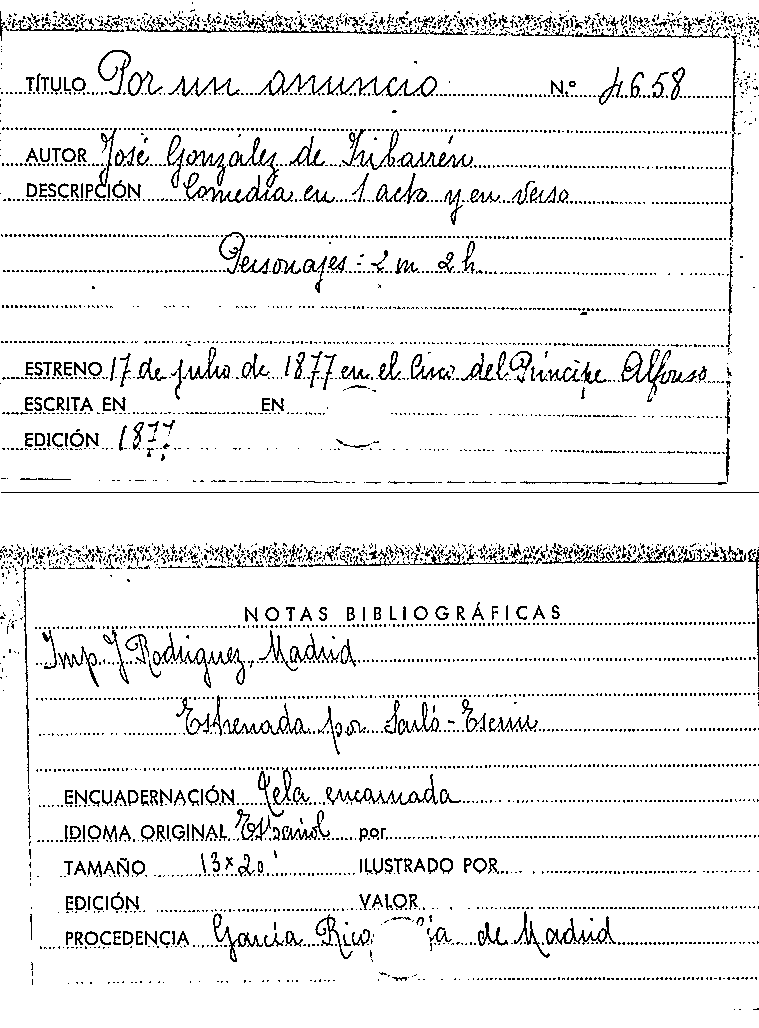 TÍTULO Por un anuncio N.º 4658
AUTOR José González de Iribarrén
DESCRIPCIÓN Comedia en 1 acto y en verso
Personajes: 2 m 2 h.
ESTRENO 17 de julio de 1877 en el Circo del Príncipe Alfonso
ESCRITA EN EN
EDICIÓN 1877
NOTAS BIBLIOGRÁFICAS
Imp. J Rodriguez, Madrid
Estrenada por
ENCUADERNACIÓN Tela encarnada
IDIOMA ORIGINAL Español por
TAMAÑO 13x20 ILUSTRADO POR
EDICIÓN VALOR
PROCEDENCIA García Rico de Madrid